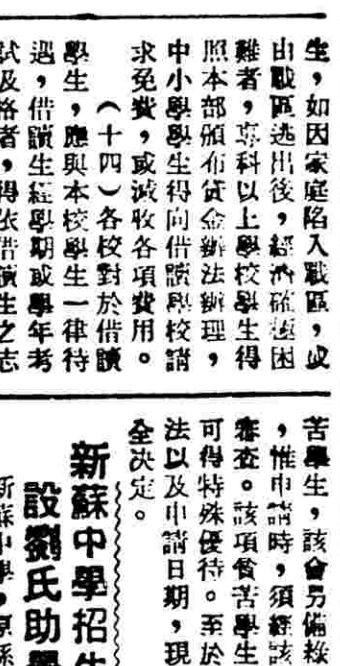 生，如因家庭陷入戰區，或
由戰區逃出後，經濟確遇困
難者，專科以上學校學生得
照本部頒布貸金辦法辦理，
中小學學生得向借讀學校請
求免費，或減收各項費用。
（十四）各校對於借讀
學生，應與本校學生一律待
遇，借讀生經學期或學年考
試及格者，得依借讀生之志
苦學生，該會另備救
，惟申請時，須經該
審查。該項貧苦學生
可得特殊優待。至於
法以及申請日期，現
全決定。
新蘇中學招生
設劉氏助學
新蘇中學，原係